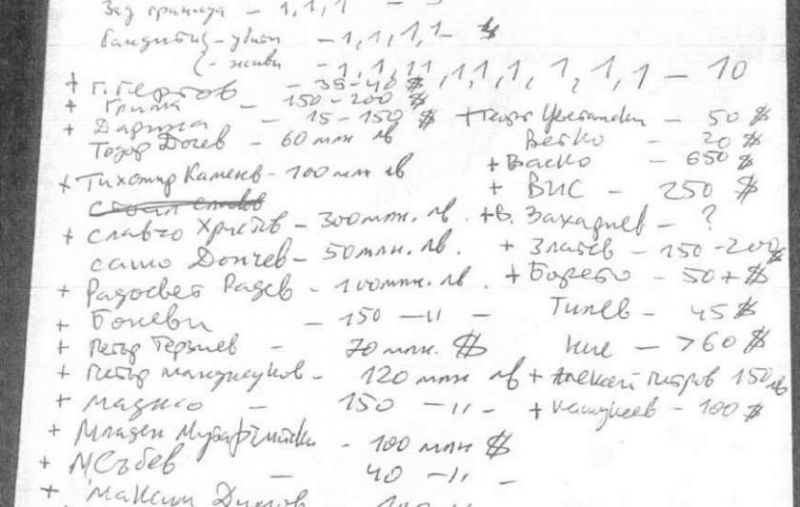 Зад граница – 1, 1, 1 – 3
бандити { – убити – 1, 1, 1, 1 – 4
{ – живи – 1, 1, 11, 1, 1, 1, 1, 1, 1 – 10
+ Г. Гергов – 35-40 $
+ Гриша – 150-200 $
+ Дариna – 15-150 $
Тодор Дочев – 60 млн лв
+ Тихомир Каменов – 100 млн лв
+ Славчо Христов – 300 млн. лв.
Сашо Дончев – 50 млн. лв.
+ Радосвет Радев – 100 млн. лв
+ Боневи – 150 –II–
+ Петър Терзиев – 70 млн. $
+ Петър Манджуков – 120 млн лв
+ Маджо – 150 –II–
+ Младен Мутафчийски – 100 млн $
+ М Събев – 40 –II–
+ Максим Димов – 100 –II–
+ Цветански – 50 $
Ветко – 20 $
+ Васко – 650 $
+ ВИС – 250 $
+ В. Захариев – ?
+ Златев – 150-200 $
+ Борето – 50+ $
Тилев – 45 $
Ние – >60 $
+ Алексей Петров 150 лв
+ – 100 $